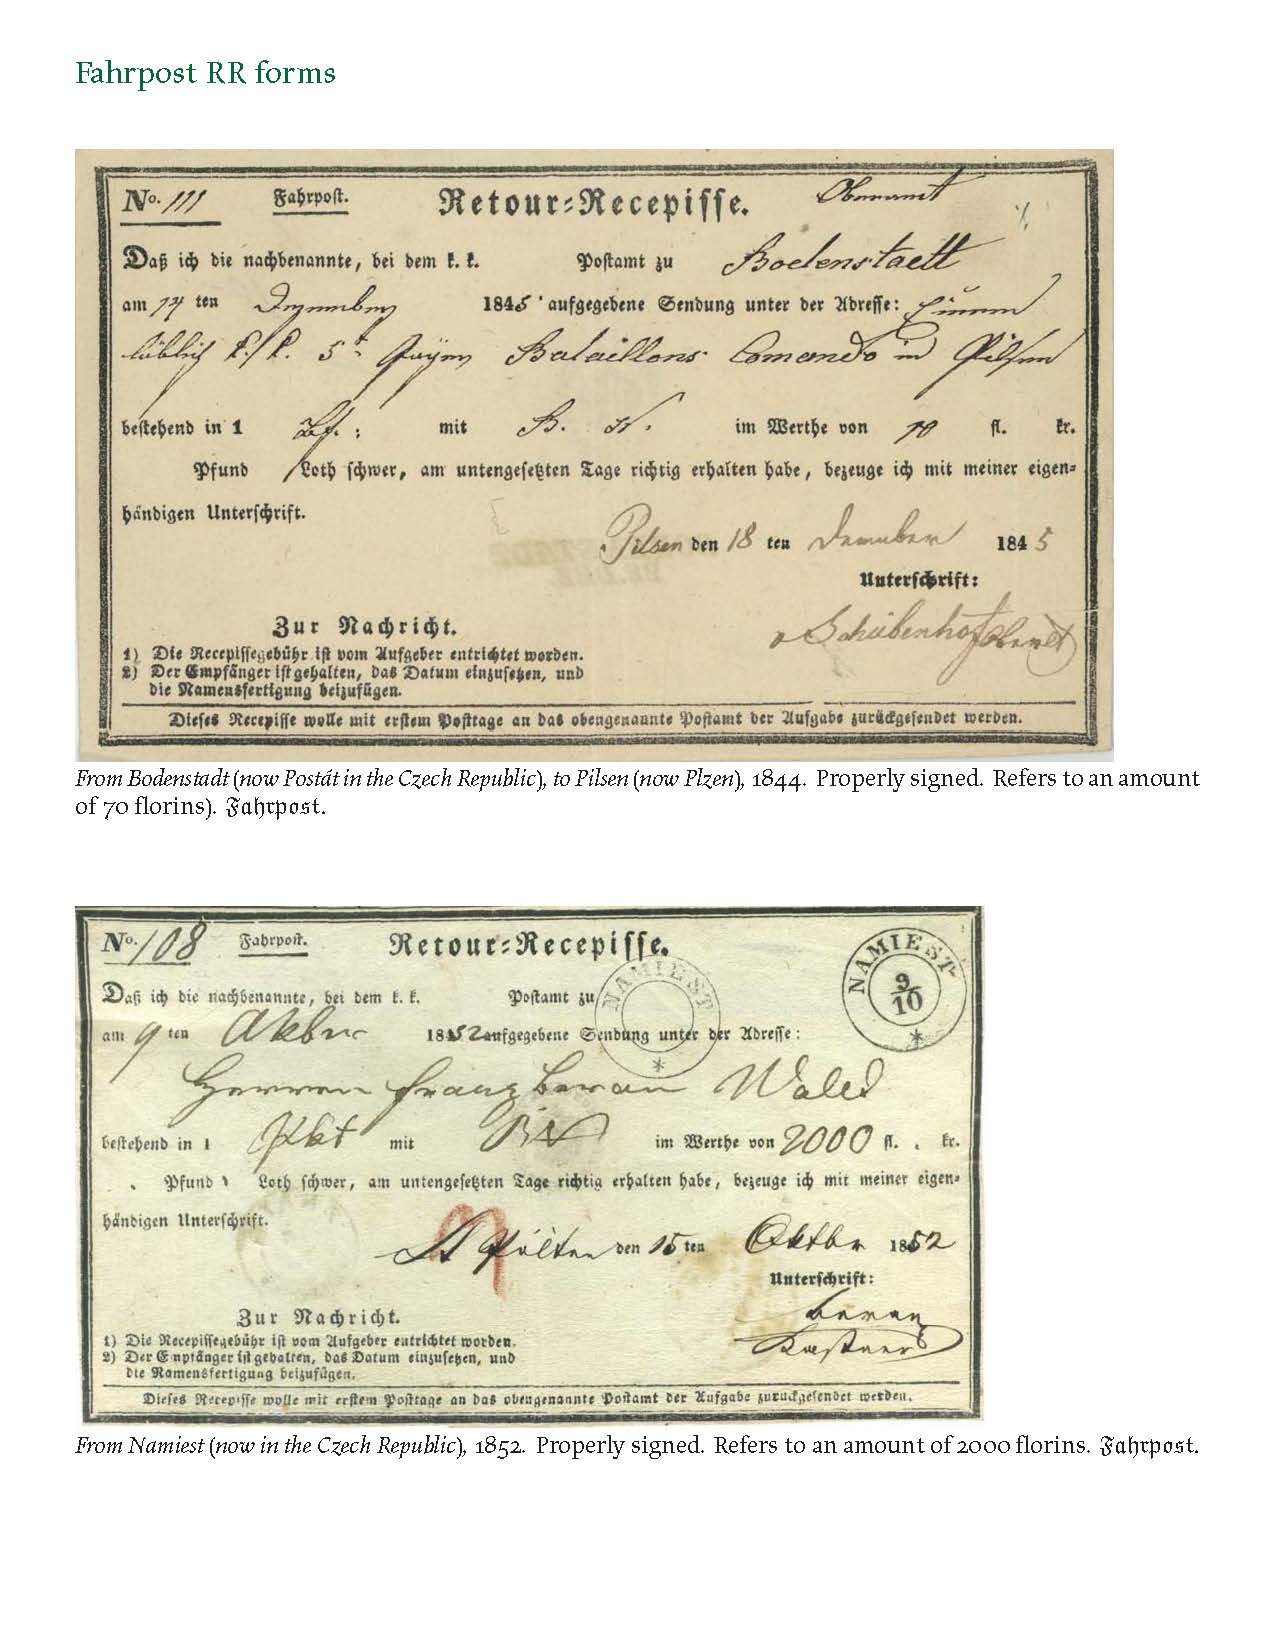 Fahrpost RR forms
No. 111 Fahrpost. Retour-Recepisse. Oberamt
Daß ich die nachbenannte, bei dem k. k. Postamt zu Bodenstadt
am ten 1845 aufgegebene Sendung unter der Adresse:
löblich k. k. 5t Bataillons Comando in Pilsen
bestehend in 1 mit B. N. im Werthe von 70 fl. kr.
Pfund Loth schwer, am untengesetzten Tage richtig erhalten habe, bezeuge ich mit meiner eigen-
händigen Unterschrift.
Pilsen den 18 ten 1845
Unterschrift:
Zur Nachricht.
1) Die Recepissegebühr ist vom Aufgeber entrichtet worden.
2) Der Empfänger ist gehalten, das Datum einzusetzen, und
die Namensfertigung beizufügen.
Dieses Recepisse wolle mit erstem Posttage an das obengenannte Postamt der Aufgabe zurückgesendet werden.
From Bodenstadt (now Postát in the Czech Republic), to Pilsen (now Plzen), 1844. Properly signed. Refers to an amount
of 70 florins). Fahrpost.
No. 108 Fahrpost. Retour-Recepisse. NAMIEST 9/10
Daß ich die nachbenannte, bei dem k. k. Postamt zu NAMIEST
am 9 ten 1852 aufgegebene Sendung unter der Adresse:
Herrn Franz Beran
bestehend in 1 Pkt mit BN im Werthe von 2000 fl. kr.
Pfund Loth schwer, am untengesetzten Tage richtig erhalten habe, bezeuge ich mit meiner eigen-
händigen Unterschrift.
St Pölten den 15 ten Oktbr 1852
Unterschrift:
Beran
Zur Nachricht.
1) Die Recepissegebühr ist vom Aufgeber entrichtet worden.
2) Der Empfänger ist gehalten, das Datum einzusetzen, und
die Namensfertigung beizufügen.
Dieses Recepisse wolle mit erstem Posttage an das obengenannte Postamt der Aufgabe zurückgesendet werden.
From Namiest (now in the Czech Republic), 1852. Properly signed. Refers to an amount of 2000 florins. Fahrpost.